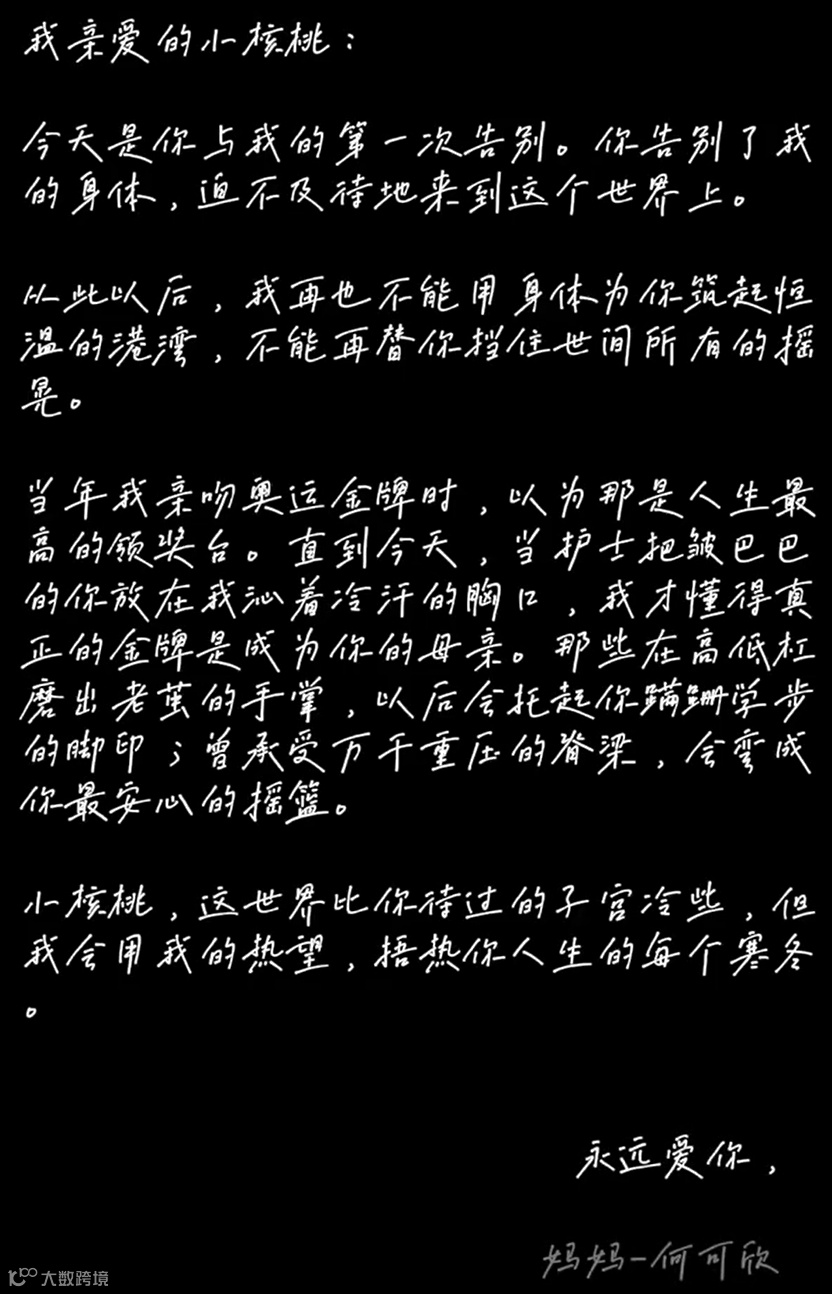 我亲爱的小核桃：
今天是你与我的第一次告别。你告别了我
的身体，迫不及待地来到这个世界上。
从此以后，我再也不能用身体为你筑起恒
温的港湾，不能再替你挡住世间所有的摇
晃。
当年我亲吻奥运金牌时，以为那是人生最
高的领奖台。直到今天，当护士把皱巴巴
的你放在我沁着冷汗的胸口，我才懂得真
正的金牌是成为你的母亲。那些在高低杠
磨出老茧的手掌，以后会托起你蹒跚学步
的脚印；曾承受万千重压的脊梁，会变成
你最安心的摇篮。
小核桃，这世界比你待过的子宫冷些，但
我会用我的热望，捂热你人生的每个寒冬
。
永远爱你，
妈妈-何可欣
大数跨境